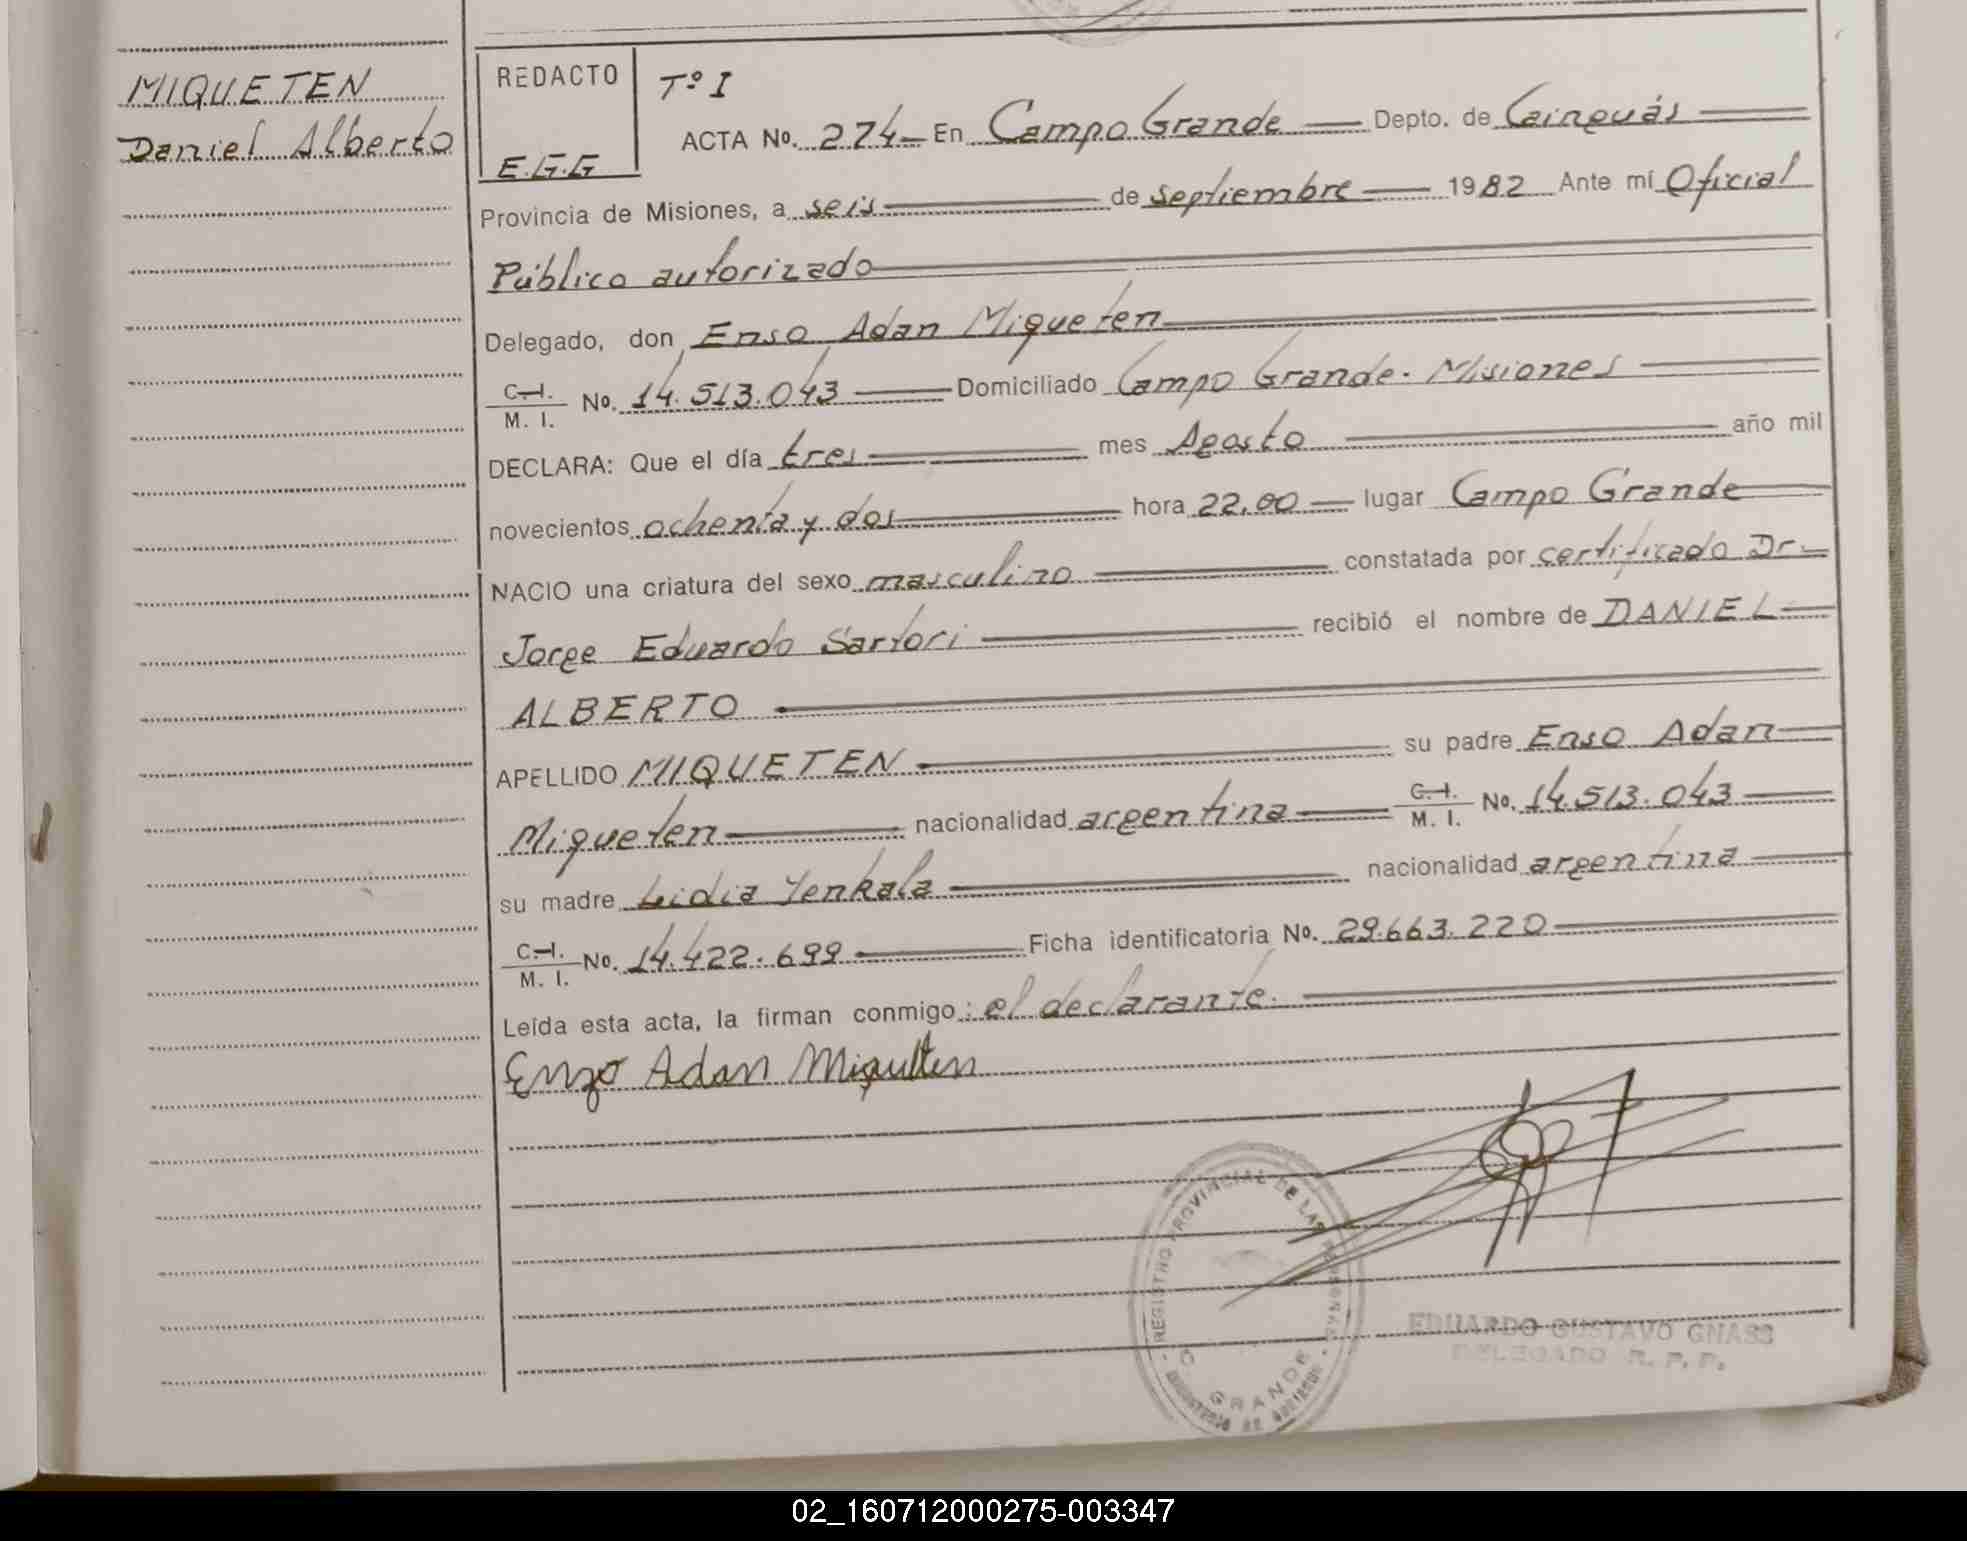 MIQUETEN
Daniel Alberto
REDACTO
E.G.G
Tº I
ACTA No. 274 En Campo Grande Depto. de Cainguás
Provincia de Misiones, a seis de septiembre 1982 Ante mí Oficial
Público autorizado
Delegado, don Enso Adan Miqueten
C.I. M. I. No. 14.513.043 Domiciliado Campo Grande. Misiones
DECLARA: Que el día tres mes Agosto año mil
novecientos ochenta y dos hora 22,00 lugar Campo Grande
NACIO una criatura del sexo masculino constatada por certificado Dr.
Jorge Eduardo Sartori recibió el nombre de DANIEL
ALBERTO
APELLIDO MIQUETEN su padre Enso Adan
Miqueten nacionalidad argentina C.I. M. I. No. 14.513.043
su madre Lidia Yenkala nacionalidad argentina
C.I. M. I. No. 14.422.699 Ficha identificatoria No. 29.663.220
Leída esta acta, la firman conmigo: el declarante.
Enzo Adan Miqueten
REGISTRO PROVINCIAL DE LAS PERSONAS
GRANDE
EDUARDO GUSTAVO GNASS
DELEGADO R. P. P.
02_160712000275-003347